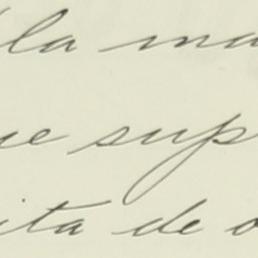 lla ma
ue sup
ita de o